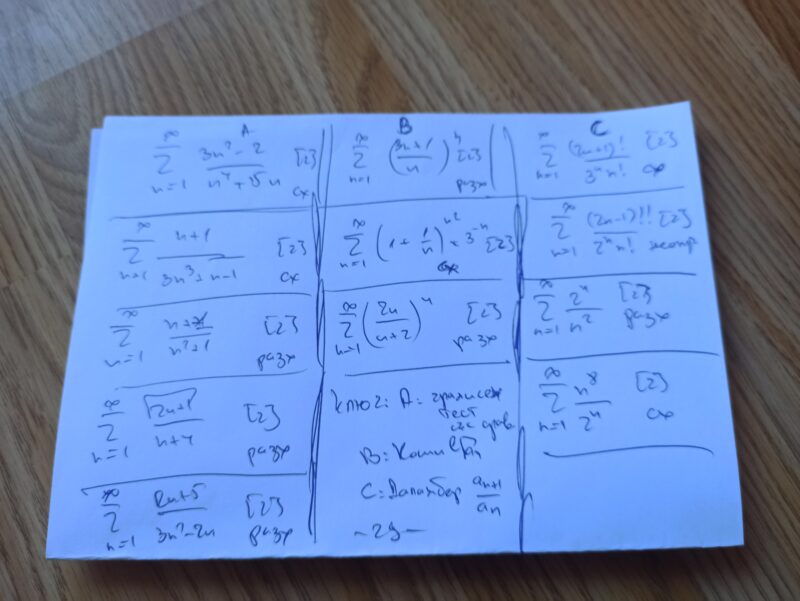 A
∞ Σ n=1 3n²-2 / n⁴+15n [2] сх
∞ Σ n=1 n+1 / 3n³+n-1 [2] сх
∞ Σ n=1 / n²+1 [2] разх
∞ Σ n=1 √2n+1 / n+4 [2] разх
∞ Σ n=1 2n+5 / 3n²-2n [2] разх
B
∞ Σ n=1 (3n+1 / n)ⁿ [2] разх
∞ Σ n=1 (1 + 1/n)^n² × 3^-n [2] сх
∞ Σ n=1 (2n / n+2)ⁿ [2] разх
Ключ: A:
тест
срав
B: Коши ⁿ√an
C: Даламбер an+1 / an
-29-
C
∞ Σ n=1 (2n+1)! / 3ⁿ n! [2] сх
∞ Σ n=1 (2n-1)!! / 2ⁿ n! [2]
∞ Σ n=1 2ⁿ / n² [2] разх
∞ Σ n=1 n⁸ / 2ⁿ [2] сх